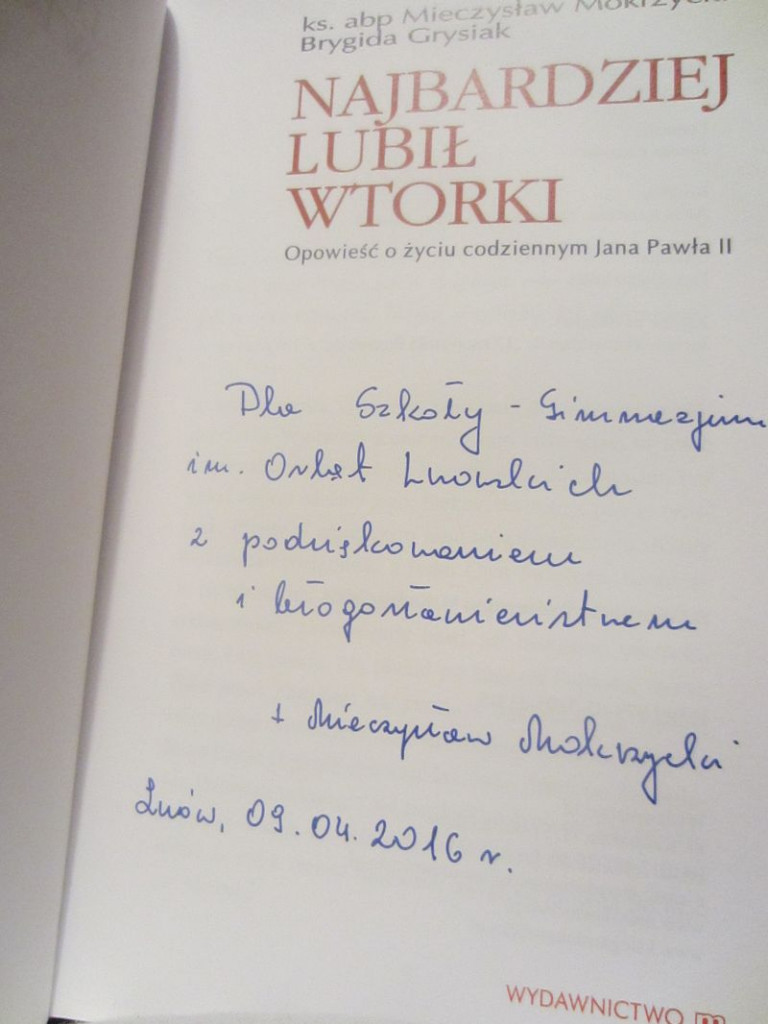 ks. abp Mieczysław Mokrzycki
Brygida Grysiak
NAJBARDZIEJ
LUBIŁ
WTORKI
Opowieść o życiu codziennym Jana Pawła II
Dla Szkoły - Gimnazjum
im. Orląt Lwowskich
z podziękowaniem
i błogosławieństwem
+ Mieczysław Mokrzycki
Lwów, 09.04.2016 r.
WYDAWNICTWO m